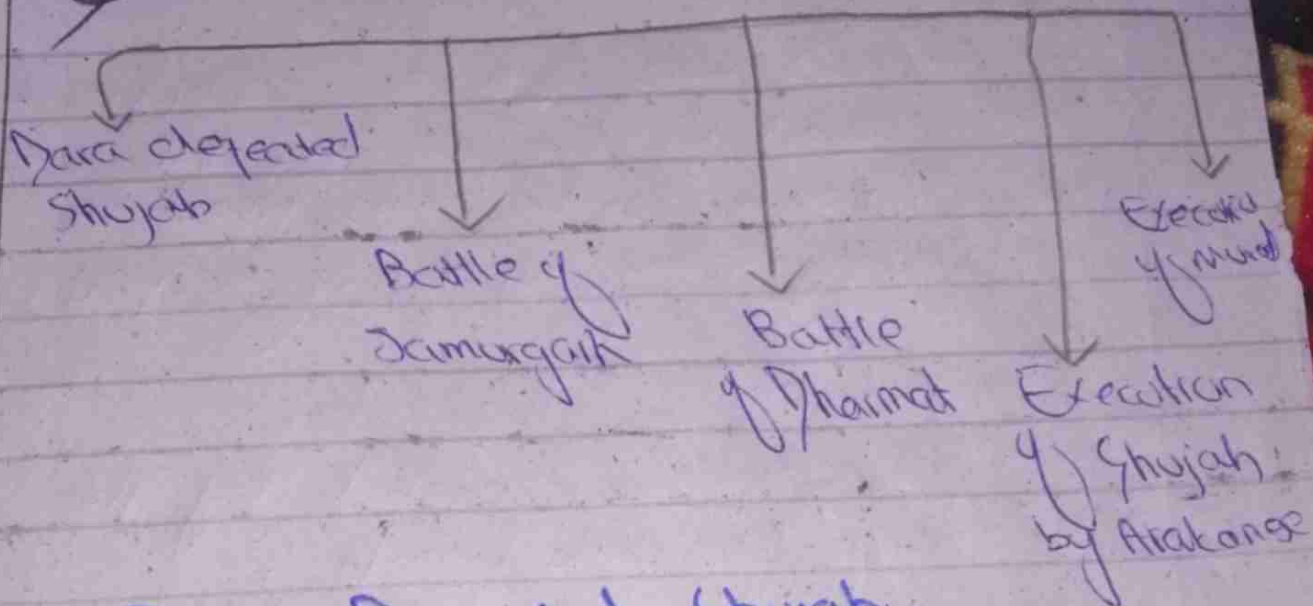 Dara defeated
Shujah
Battle of
Samurgarh
Battle
of Dharmat
Execution
of Shujah
by Arakanse
Execution
of Murad
Shujah